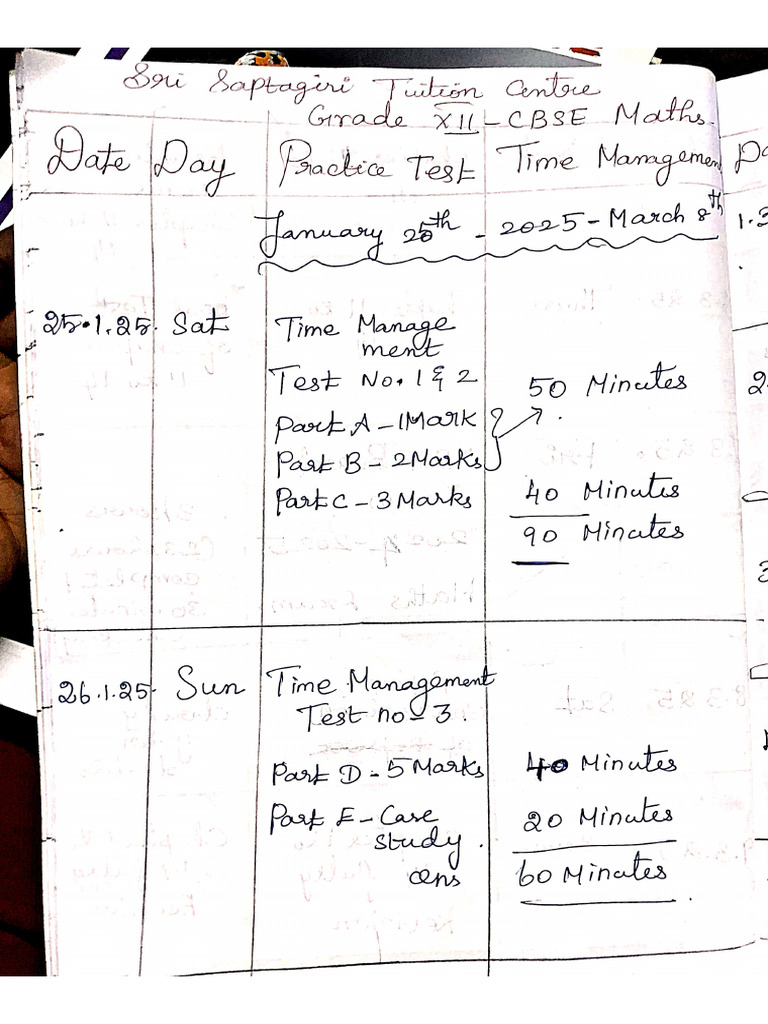 Sri Saptagiri Tuition Centre
Grade XII - CBSE Maths
Date Day Practice Test Time Management
January 25th - 2025 - March 8th
25.1.25. Sat Time Manage
ment
Test No. 1 & 2 50 Minutes
Part A - 1 Mark
Part B - 2 Marks
Part C - 3 Marks 40 Minutes
90 Minutes
26.1.25. Sun Time Management
Test no - 3.
Part D - 5 Marks 40 Minutes
Part E - Case 20 Minutes
study.
60 Minutes